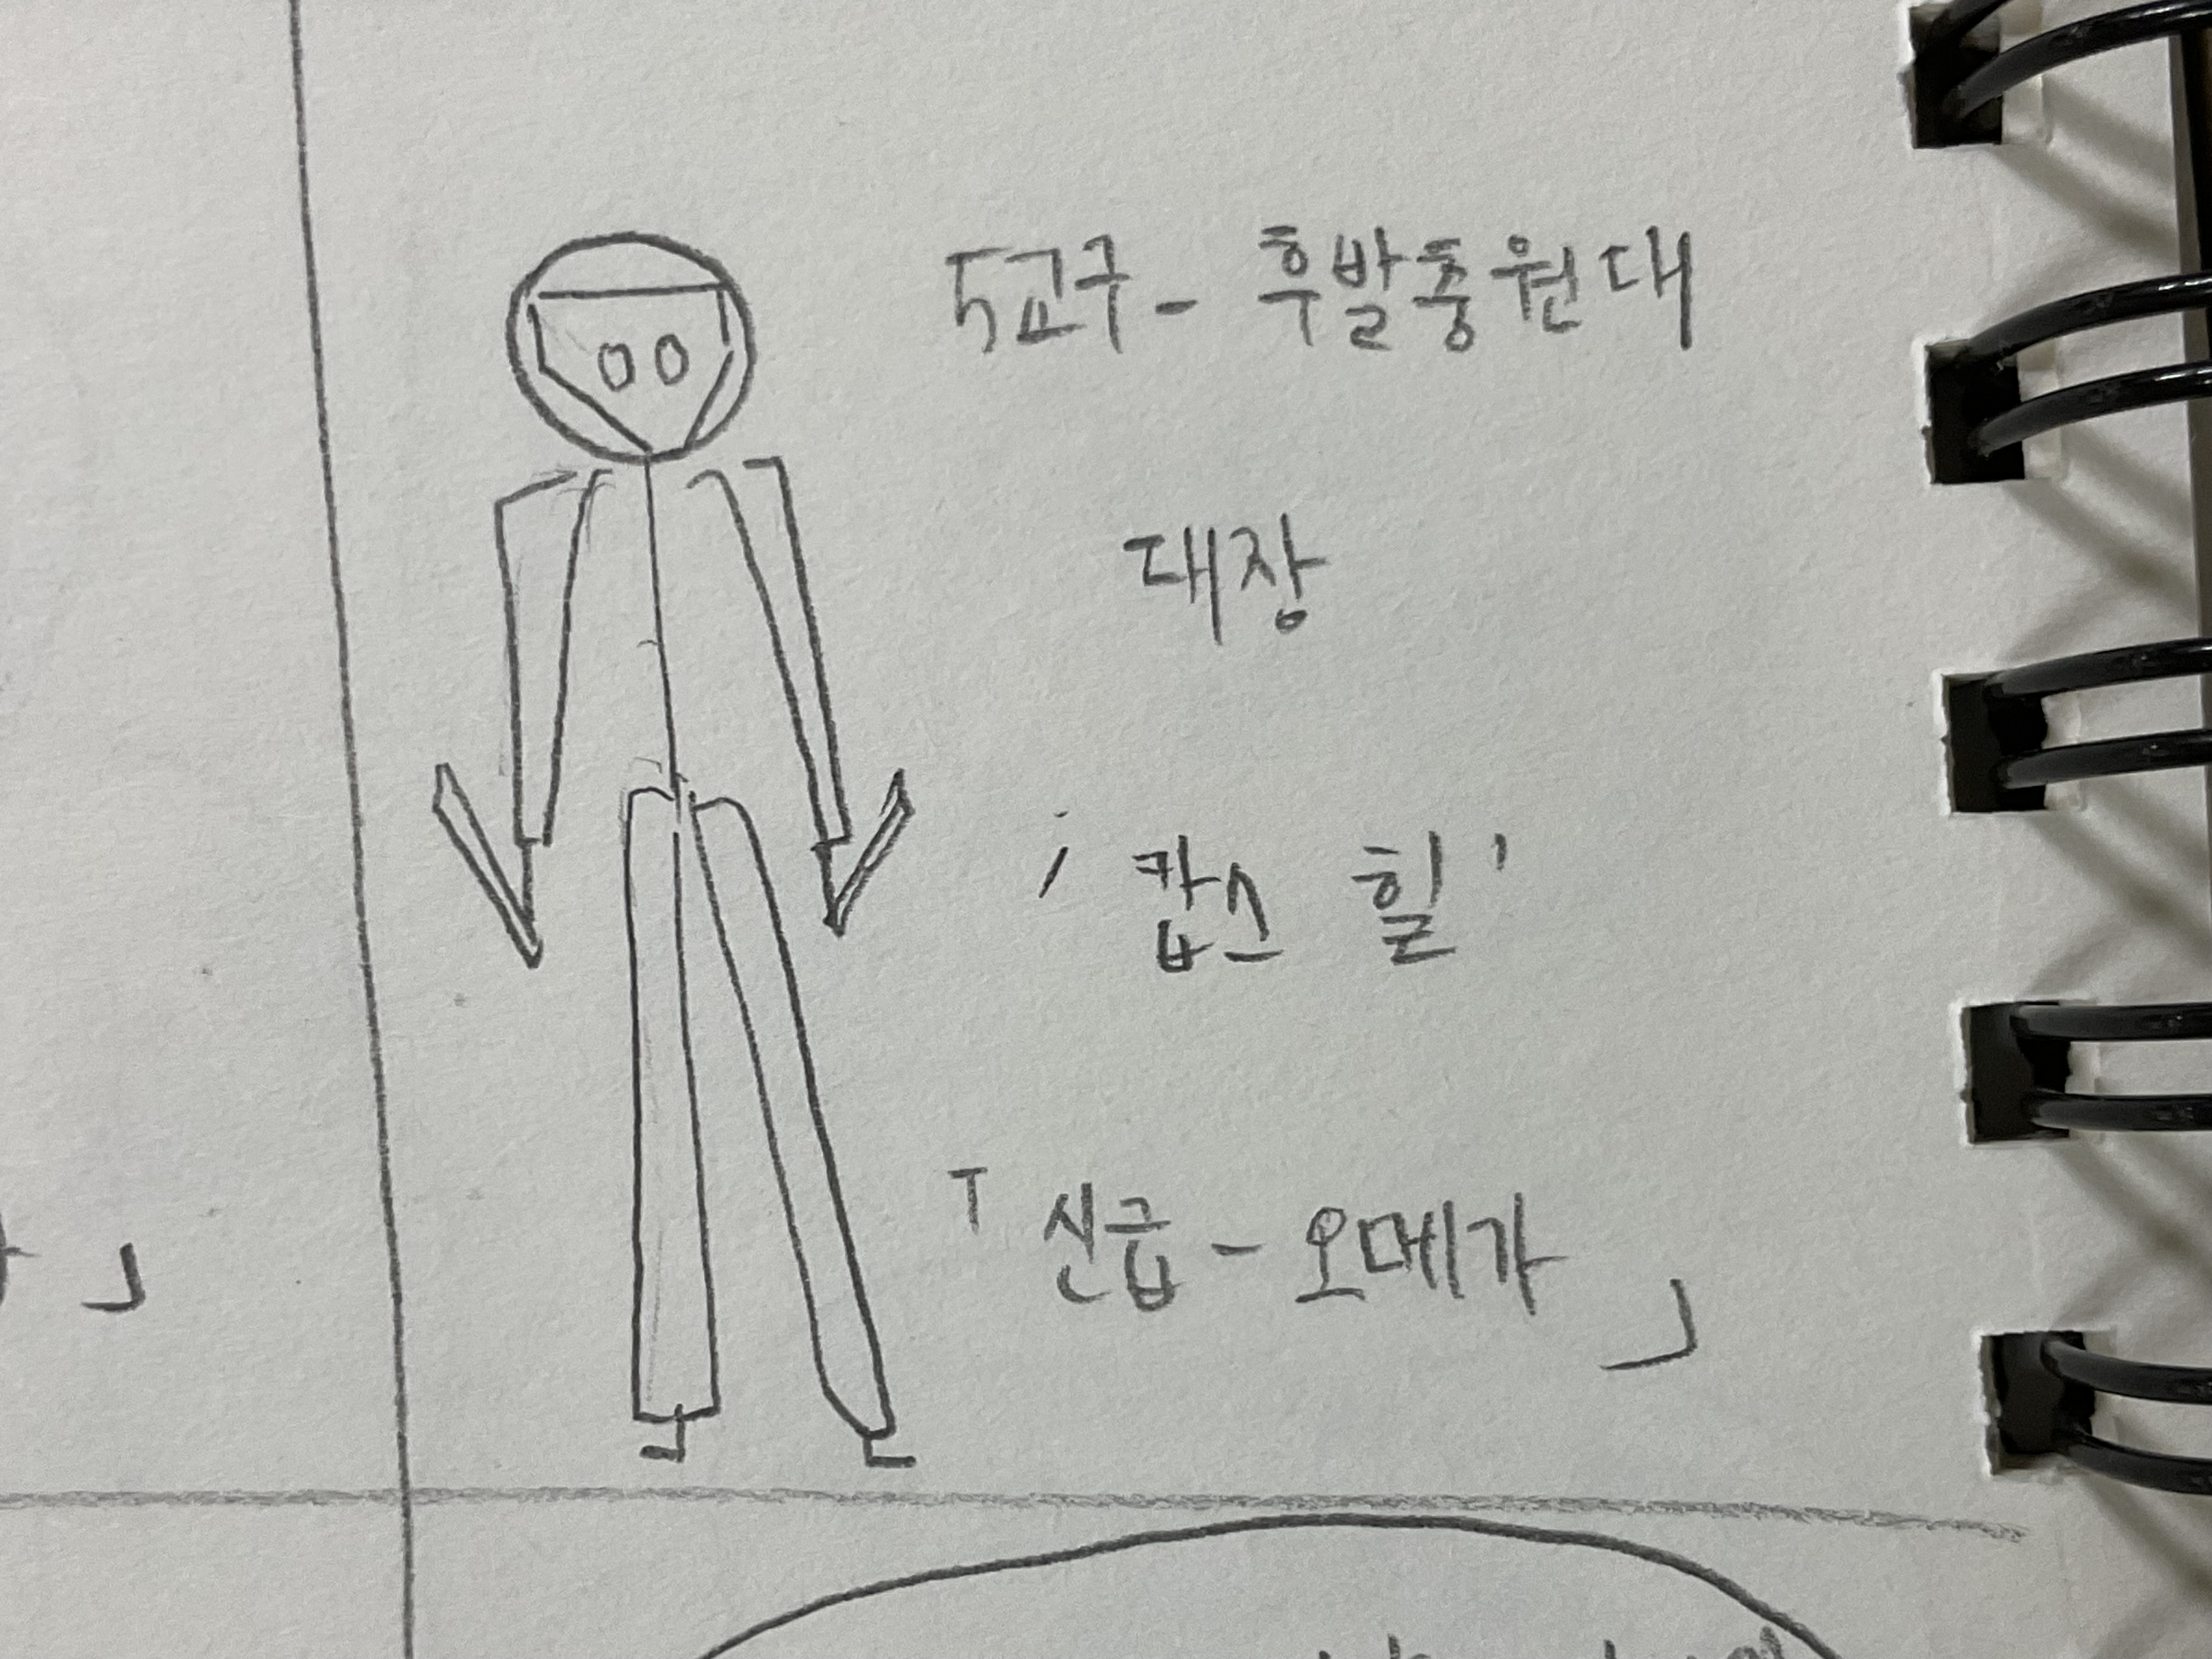 5교구 - 후발충원대
대장
' 캅스 힐 '
「 신급 - 오메가 」
」